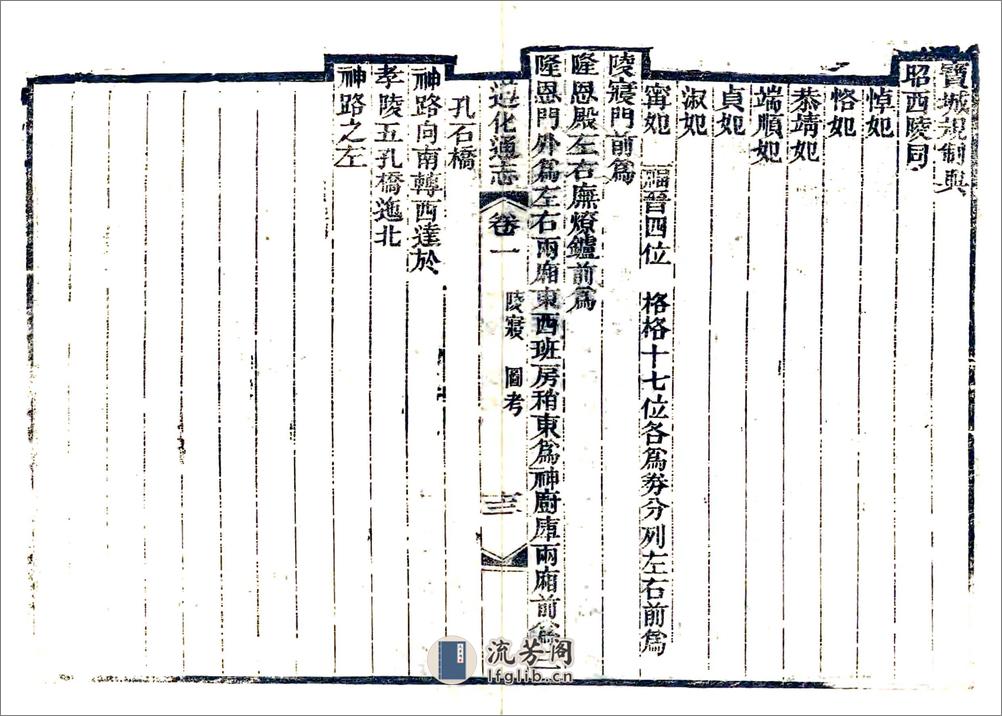 寶城規制與
昭西陵同
悼妃
恪妃
恭靖妃
端順妃
貞妃
淑妃
甯妃 福晉四位 格格十七位各爲券分列左右前爲
陵寢門前爲
隆恩殿左右廡燎鑪前爲
隆恩門外爲左右兩廂東西班房稍東爲神廚庫兩廂前
遵化通志 卷一 陵寢 圖考
孔石橋
神路向南轉西達於
孝陵五孔橋迤北
神路之左
流芳阁
lfglib.cn